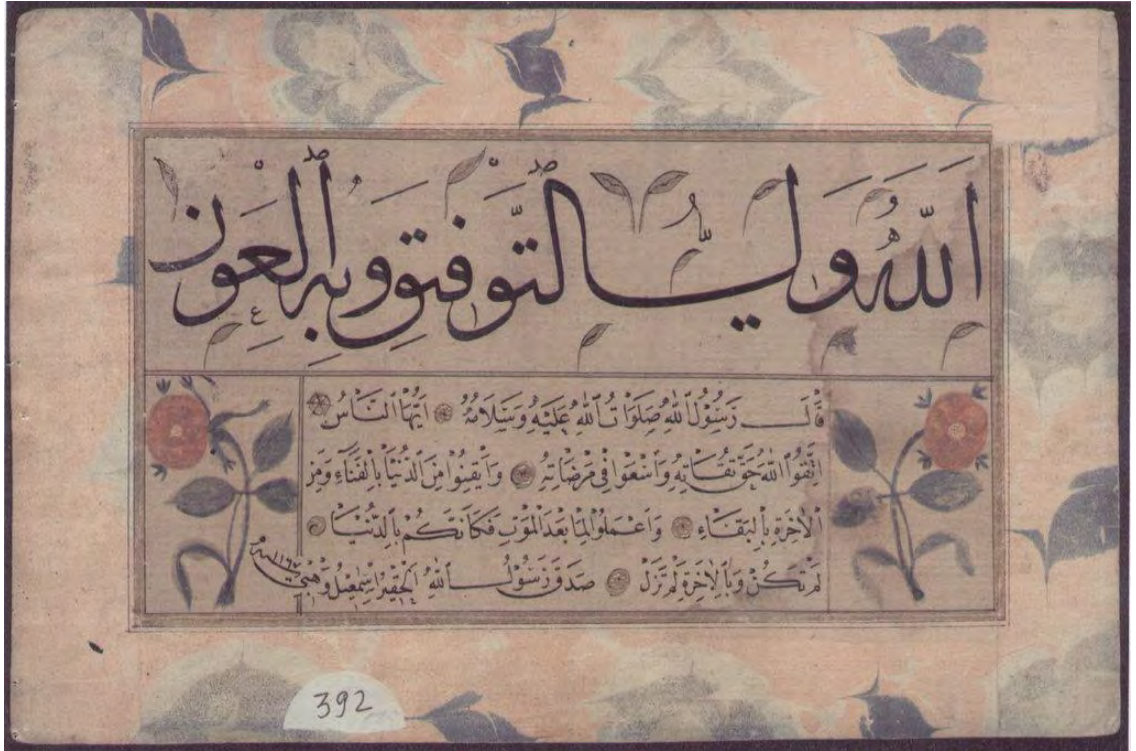 اَللّٰهُ وَلِيُّ التَّوْفِيقِ وَبِهِ الْعَوْنُ
قَالَ رَسُوْلُ اللّٰهِ صَلَوَاتُ اللّٰهِ عَلَيْهِ وَسَلَامُهُ اَيُّهَا النَّاسُ
اتَّقُوا اللّٰهَ حَقَّ تُقَاتِهِ وَاسْعَوْا فِي مَرْضَاتِهِ وَاَيْقِنُوا مِنَ الدُّنْيَا بِالْفَنَاءِ وَمِنَ
الْاٰخِرَةِ بِالْبَقَاءِ وَاعْمَلُوا لِمَا بَعْدَ الْمَوْتِ فَكَاَنَّكُمْ بِالدُّنْيَا
لَمْ تَكُنْ وَبِالْاٰخِرَةِ لَمْ تَزَلْ صَدَقَ رَسُوْلُ اللّٰهِ
الحقير اسمعيل وهبي
سنه ١١٦٧
392